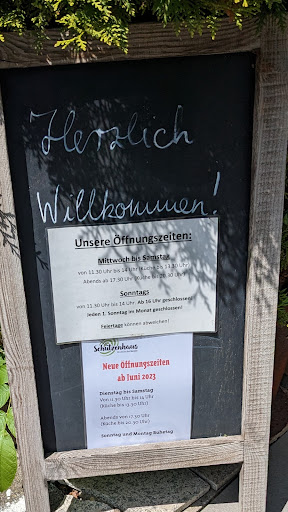 Herzlich
Willkommen!
Unsere Öffnungszeiten:
Mittwoch bis Samstag
von 11.30 Uhr bis 14 Uhr (Küche bis 13.30 Uhr)
Abends ab 17.30 Uhr
Sonntags
von 11.30 Uhr bis 14 Uhr. Ab 16 Uhr geschlossen!
Jeden 1. Sonntag im Monat geschlossen!
Feiertage können abweichen!
Schützenhaus
Neue Öffnungszeiten
ab Juni 2023
Dienstag bis Samstag
Von 11.30 Uhr bis 14 Uhr
(Küche bis 13.30 Uhr)
Abends von 17.30 Uhr
(Küche bis 20.30 Uhr)
Sonntag und Montag Ruhetag